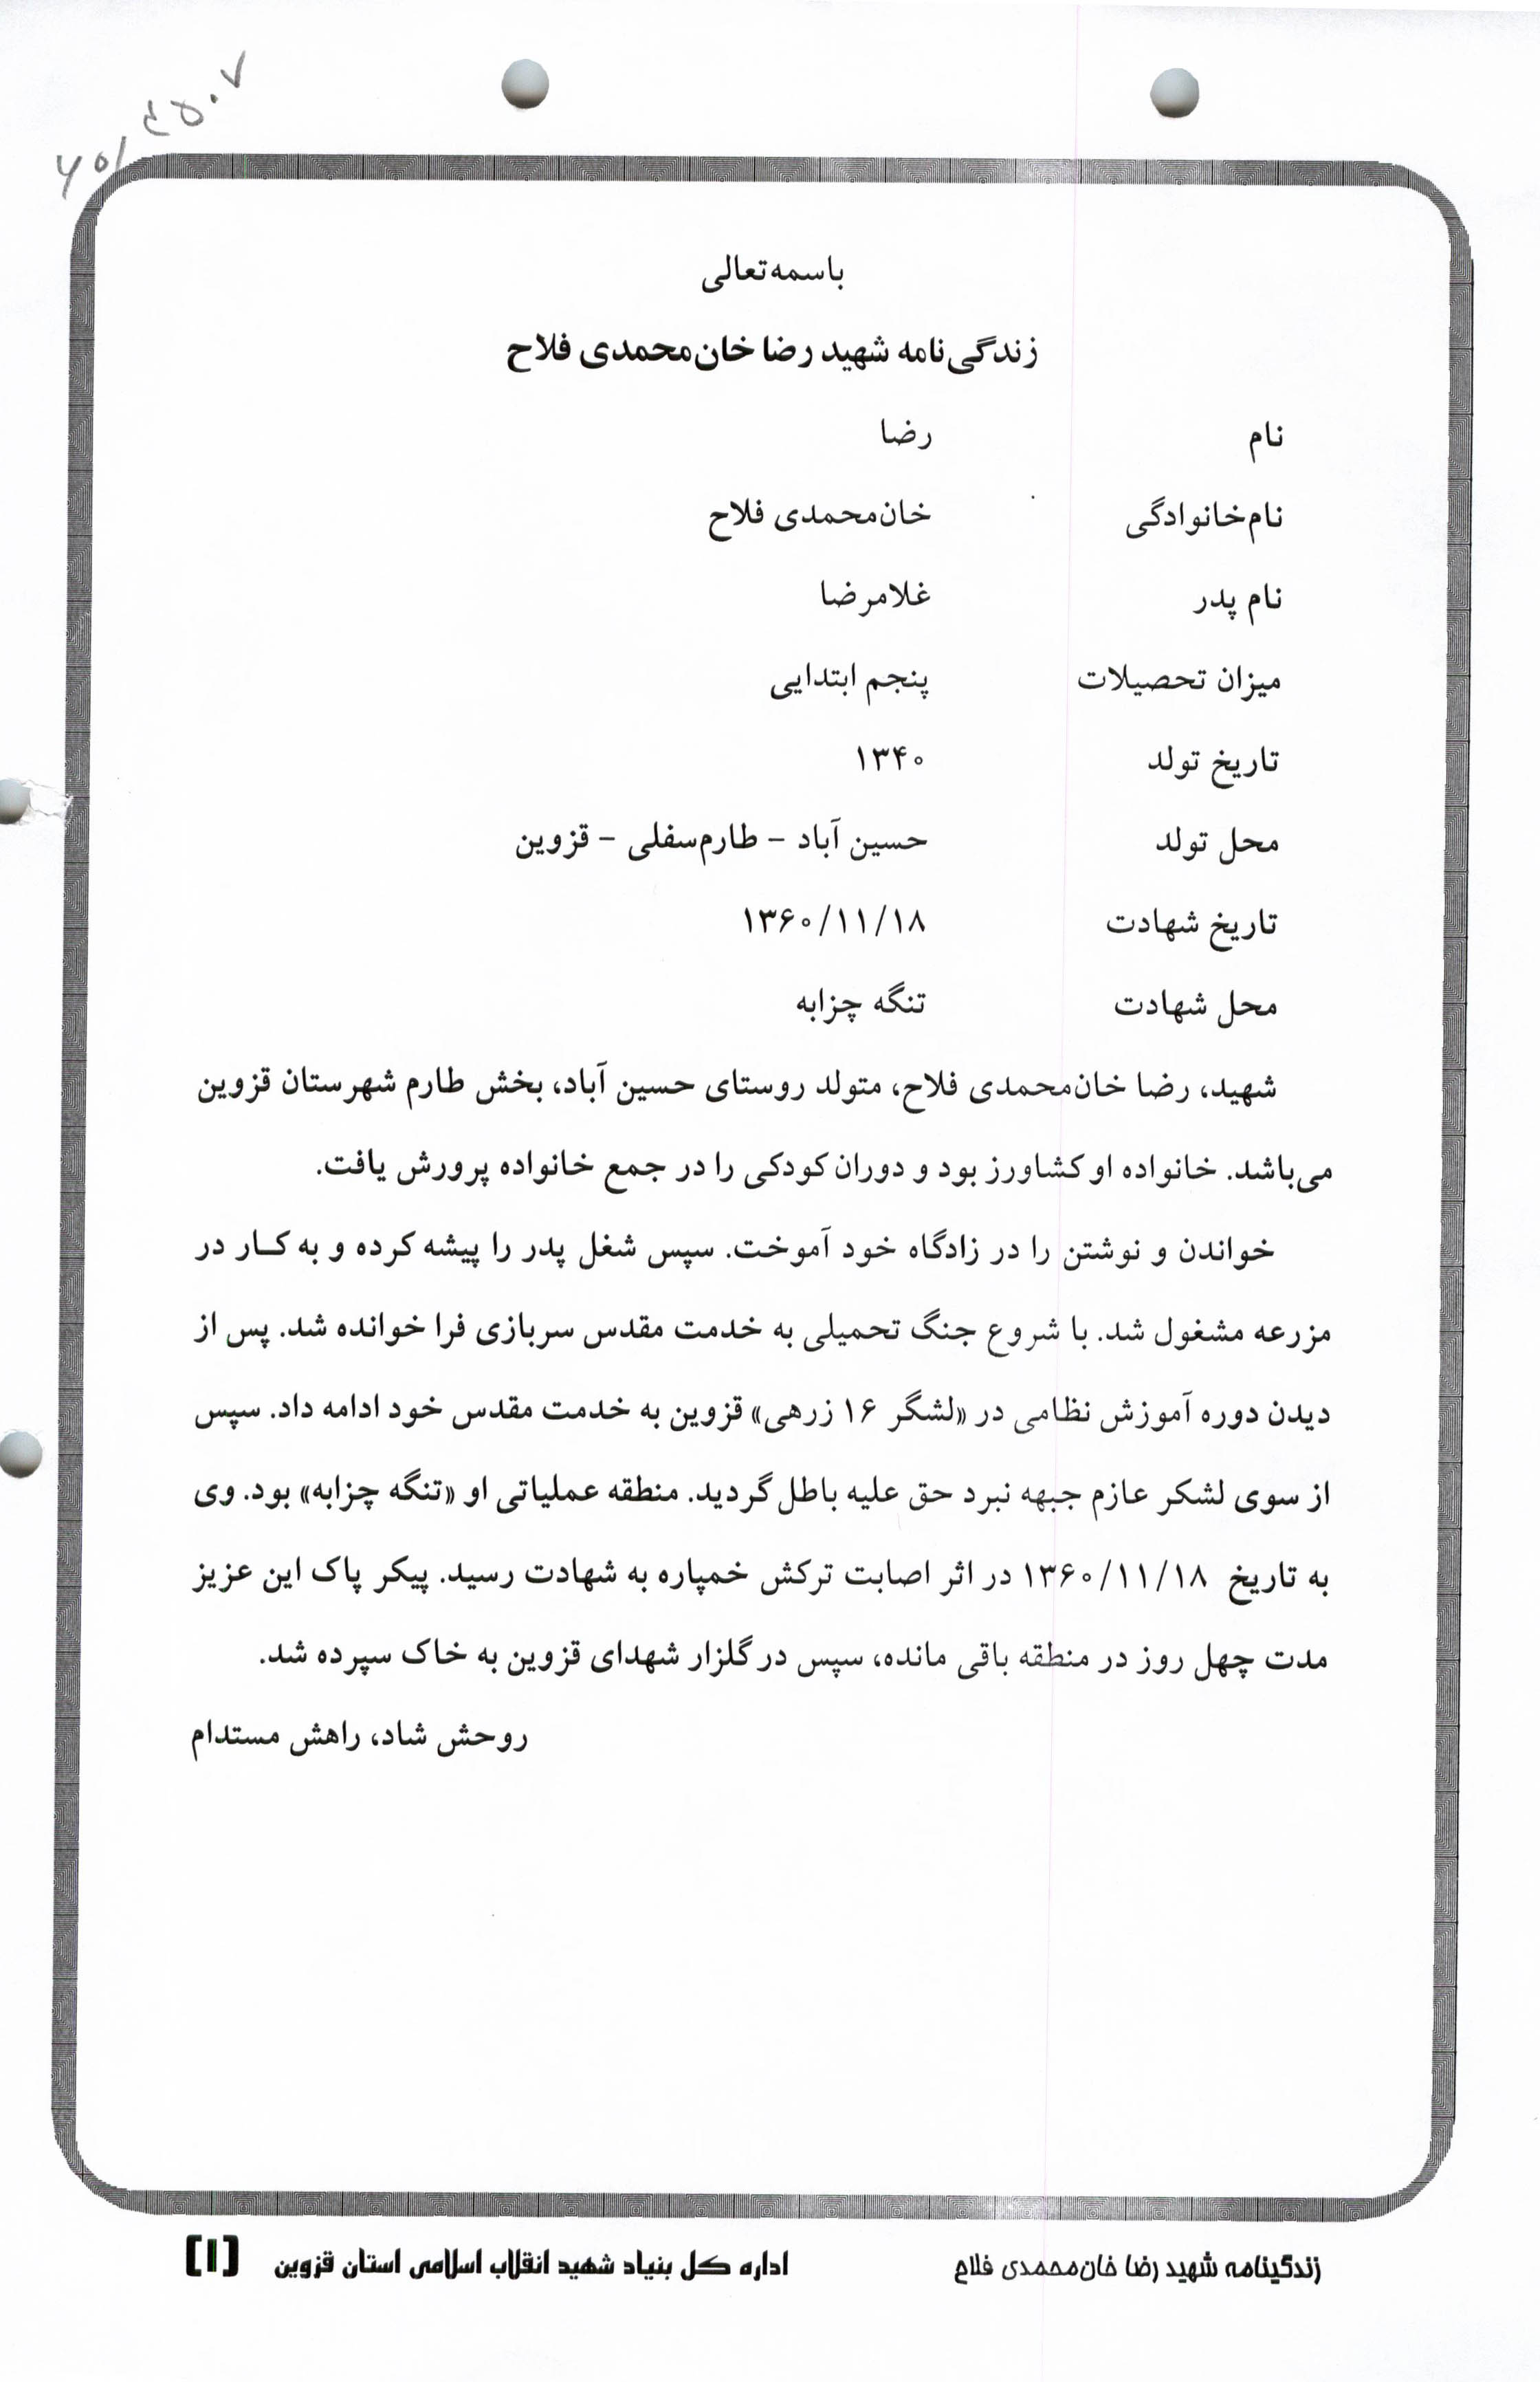 باسمه‌تعالی
زندگی‌نامه شهید رضا خان‌محمدی فلاح
نام رضا
نام‌خانوادگی خان‌محمدی فلاح
نام پدر غلامرضا
میزان تحصیلات پنجم ابتدایی
تاریخ تولد ۱۳۴۰
محل تولد حسین آباد - طارم‌سفلی - قزوین
تاریخ شهادت ۱۳۶۰/۱۱/۱۸
محل شهادت تنگه چزابه
شهید، رضا خان‌محمدی فلاح، متولد روستای حسین آباد، بخش طارم شهرستان قزوین
می‌باشد. خانواده او کشاورز بود و دوران کودکی را در جمع خانواده پرورش یافت.
خواندن و نوشتن را در زادگاه خود آموخت. سپس شغل پدر را پیشه کرده و به کار در
مزرعه مشغول شد. با شروع جنگ تحمیلی به خدمت مقدس سربازی فرا خوانده شد. پس از
دیدن دوره آموزش نظامی در «لشگر ۱۶ زرهی» قزوین به خدمت مقدس خود ادامه داد. سپس
از سوی لشکر عازم جبهه نبرد حق علیه باطل گردید. منطقه عملیاتی او «تنگه چزابه» بود. وی
به تاریخ ۱۳۶۰/۱۱/۱۸ در اثر اصابت ترکش خمپاره به شهادت رسید. پیکر پاک این عزیز
مدت چهل روز در منطقه باقی مانده، سپس در گلزار شهدای قزوین به خاک سپرده شد.
روحش شاد، راهش مستدام
زندگینامه شهید رضا خان‌محمدی فلاح اداره کل بنیاد شهید انقلاب اسلامی استان قزوین [۱]